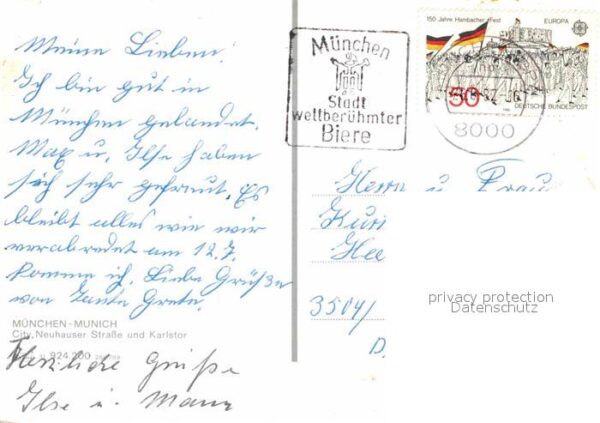 Meine Lieben!
Ich bin gut in
München gelandet.
Max u. Ilse haben
sich sehr gefreut. Es
bleibt alles wie wir
verabredet am 12.7.
komme ich. Liebe Grüße
von Tante Grete.
MÜNCHEN-MUNICH
City, Neuhauser Straße und Karlstor
924 200
Herzliche Grüße
Ilse u. Max
München
Stadt
weltberühmter
Biere
150 Jahre Hambacher Fest
EUROPA
50
DEUTSCHE BUNDESPOST
8000
Herrn u Frau
Kurt
3504/
D.
privacy protection
Datenschutz